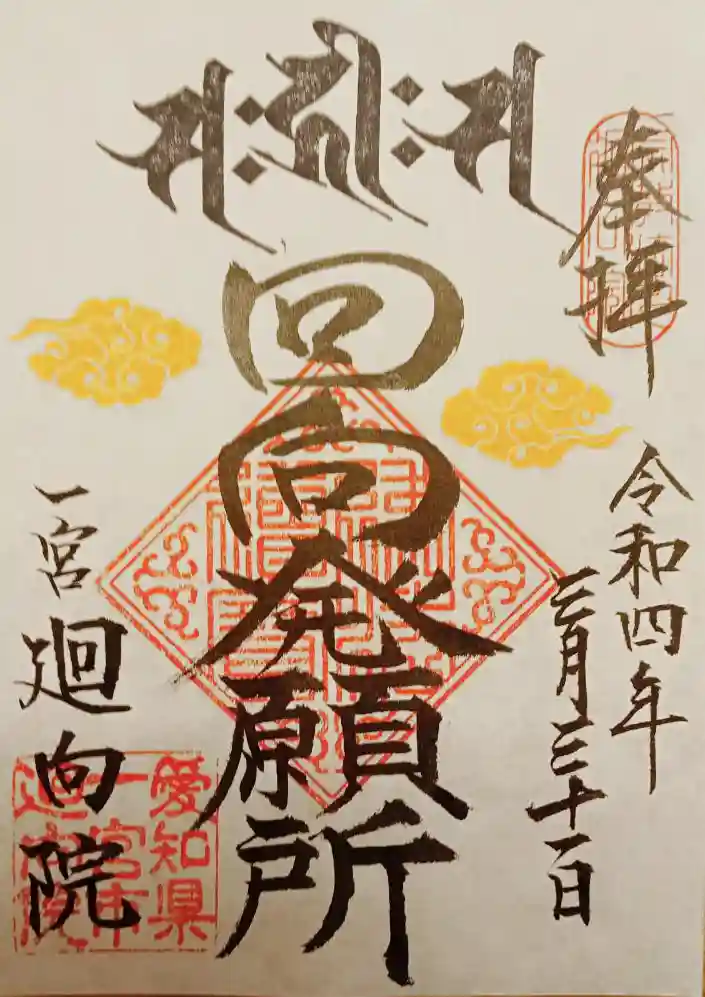 奉拝
令和四年
三月三十一日
回向発願所
一宮
廻向院
愛知県
一宮市
廻向院